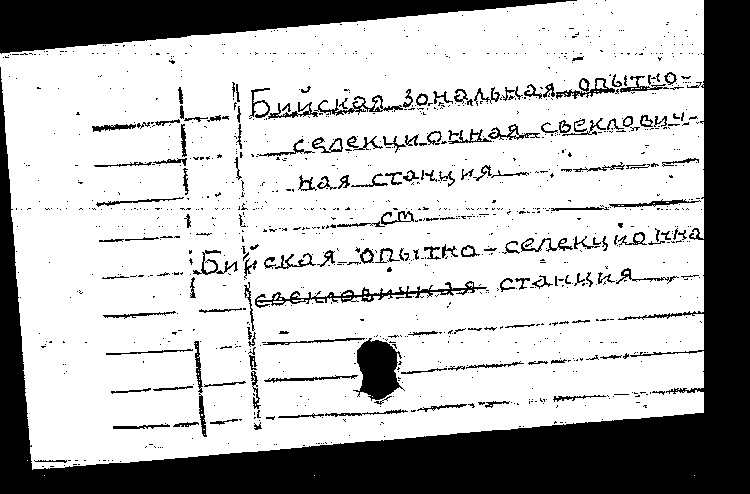 Бийская зональная опытно-
селекционная свеклович-
ная станция
ст
Бийская опытно-селекционна
свекловичная станция